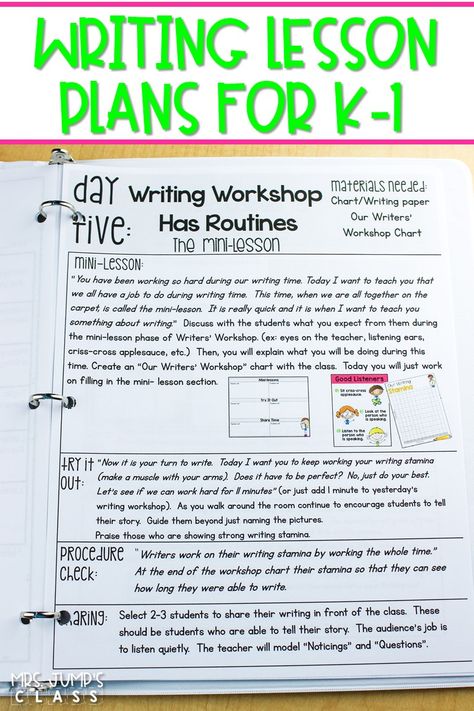 WRITING LESSON
PLANS FOR K-1
day
five:
Writing Workshop
Has Routines
The mini-lesson
materials needed:
Chart/Writing paper
Our Writers'
Workshop Chart
mini-lesson:
"You have been working so hard during our writing time. Today I want to teach you that
we all have a job to do during writing time. This time, when we are all together on the
carpet, is called the mini-lesson. It is really quick and it is when I want to teach you
something about writing." Discuss with the students what you expect from them during
the mini-lesson phase of Writers' Workshop. (ex: eyes on the teacher, listening ears,
criss-cross applesauce, etc.) Then, you will explain what you will be doing during this
time. Create an "Our Writers' Workshop" chart with the class. Today you will just work
on filling in the mini- lesson section.
Mini-lessons
Try It Out
Share Time
Good Listeners
Sit criss-cross
applesauce.
Look at the
person who
is speaking.
Listen to the
person who
is speaking.
Our Writing
Stamina
try it
out:
"Now it is your turn to write. Today I want you to keep working your writing stamina
(make a muscle with your arms). Does it have to be perfect? No, just do your best.
Let's see if we can work hard for 11 minutes" (or just add 1 minute to yesterday's
writing workshop). As you walk around the room continue to encourage students to tell
their story. Guide them beyond just naming the pictures.
Praise those who are showing strong writing stamina.
procedure
check:
"Writers work on their writing stamina by working the whole time."
At the end of the workshop chart their stamina so that they can see
how long they were able to write.
sharing:
Select 2-3 students to share their writing in front of the class. These
should be students who are able to tell their story. The audience's job is
to listen quietly. The teacher will model "Noticings" and "Questions".
MRS. JUMP'S
CLASS